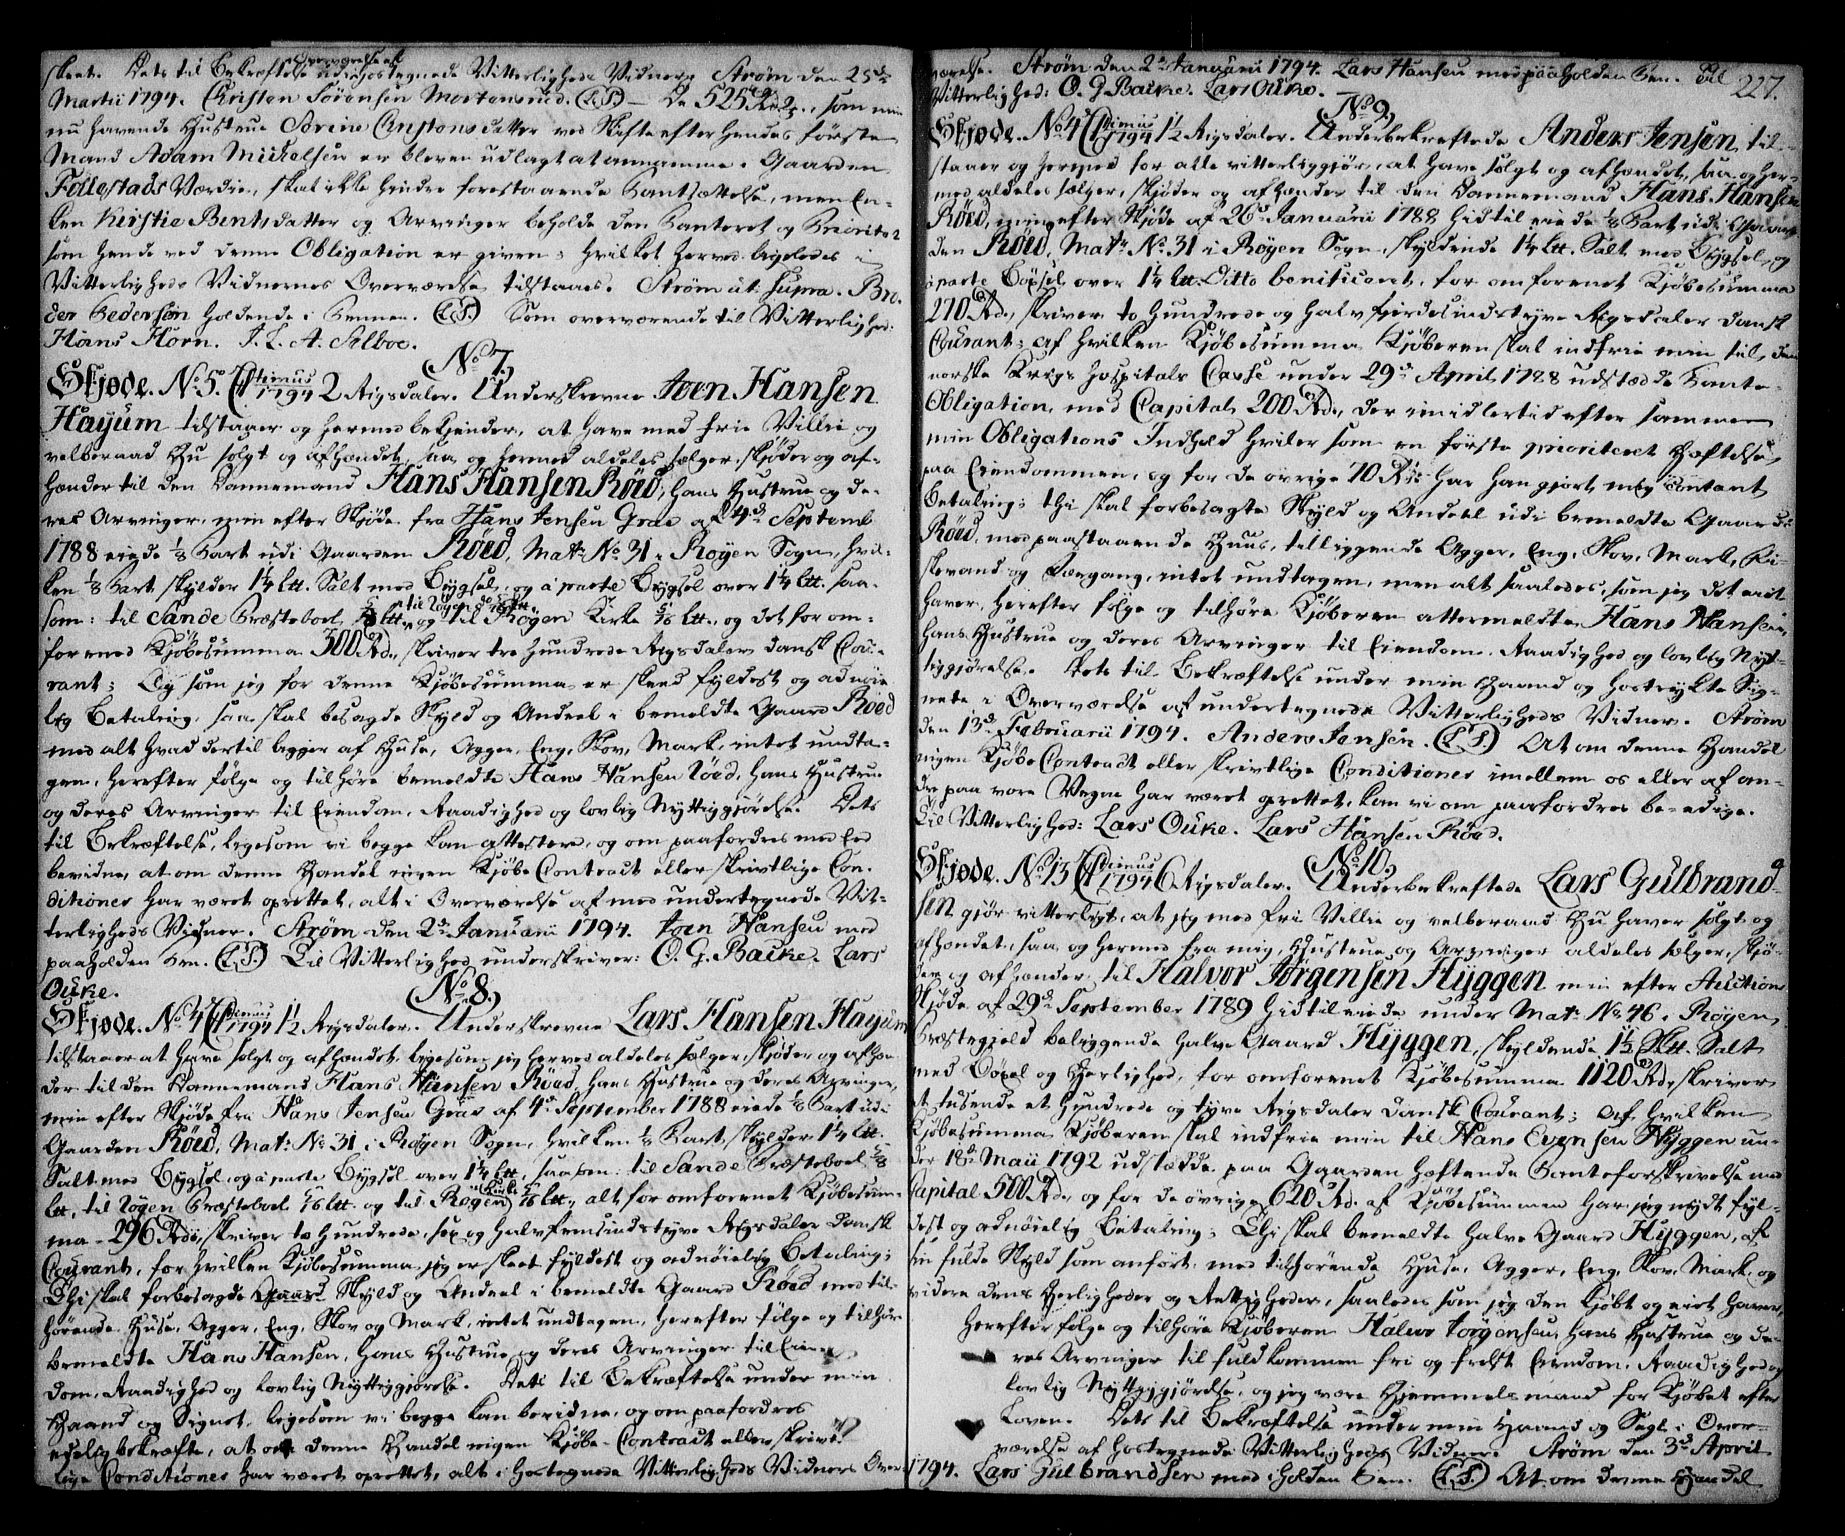 skeet. Dets til Bekræftelse udi Overværelse af hostegnede Vitterligheds Vidner. Strøm den 25de
Martii 1794. Christen Sörensen Mortensrud. (L.S.) — De 525 Rdr som min
nu havende Hustrue Sorine Christensdatter ved Skifte efter hendes første
Mand Adam Mickelsen er bleven udlagt at annamme i Gaarden
Follestads Værdie, skal ikke hindre forestaaende Pantsættelse, men En-
ken Kirstie Bentsdatter og Arvinger beholde den Panteret og Prioritet
som hende ved denne Obligation er given; hvilket herved ligeledes i
Vitterligheds Vidnernes Overværelse tilstaaes. Strøm ut supra. Pe-
der Pedersen holdende i Pennen. (L.S.) Som overværende til Vitterlighed:
Hans Horn. J. L. A. Selboe.
No 7,
Skjøde. No 5. 1794 2 Rigsdaler. Underskrevne Joen Hansen
Hayum tilstaaer og hermed bekjender, at have med frie Villie og
velberaad Hu solgt og afhændet, saa og hermed aldeles sælger, skjøder og af-
hænder til den Dannemand Hans Hansen Röed, hans Hustrue og de-
res Arvinger, min efter Skjøde fra Hans Jensen Grav af 4de Septemb
1788 eiede 1/8 Part udi Gaarden Röed, Matr No 31 i Royen Sogn, hvil-
ken 1/8 Part skylder 1 1/4 Ltt. Salt med Bygsel, og à parte Bygsel over 1 1/4 Ltt. saa-
som: til Sande Præsteboel 5/8 Ltt. til Røyen do og til Røyen Kirke 5/16 Ltt., og det for om-
forened Kjøbesumma 300 Rdr, skriver tre hundrede Rigsdaler dansk Cou-
rant; Og som jeg for denne Kjøbesumma er skeed fyldest og adnøie-
lig Betaling, saa skal besagde Skyld og Andeel i bemeldte Gaard Röed
med alt hvad dertil ligger af Huse, Agger, Eng, Skov, Mark, intet undta-
gen, herefter følge og tilhøre bemeldte Hans Hansen Röed, hans Hustrue
og deres Arvinger til Eiendom, Raadighed og lovlig Nyttiggjørelse. Dets
til Bekræftelse, ligesom vi begge kan attestere, og om paafordres med Eed
bevidne, at om denne Handel ingen Kjøbe Contract eller skrivtlige Con-
ditioner har været oprettet, alt i Overværelse af med undertegnede Vit-
terligheds Vidner. Strøm den 2de Januarii 1794. Joen Hansen med
paaholden Pen. (L.S.) Til Vitterlighed underskriver: O. G. Backe. Lars
Ouke.
No 8,
Skjøde. No 4 1794 1 1/2 Rigsdaler. Underskrevne Lars Hansen Hayum
tilstaaer at have solgt og afhændet, ligesom jeg herved aldeles sælger, skjøder og afhæn-
der til den Dannemand Hans Hansen Röed, hans Hustrue og deres Arvinger,
min efter Skjøde fra Hans Jensen Grav af 4de September 1788 eiede 1/8 Part udi
Gaarden Röed, Matr No 31 i Røyen Sogn, hvilken 1/8 Part skylder 1 1/4 Ltt.
Salt med Bygsel, og à parte Bygsel over 1 1/4 Ltt, saasom: til Sande Præsteboel 5/8
Ltt, til Røyen Præsteboel 5/16 Ltt. og til Røyen Kirke 5/16 Ltt., alt for omforenet Kjøbesum-
ma 296 Rdr, skriver to hundrede, sex og halvfemsindstyve Rigsdaler dansk
Courant, for hvilken Kjøbesumma jeg er skeet fyldest og adnøielig Betaling;
Thi skal forbesagde Skyld og Andeel i bemeldte Gaard Röed med til-
hørende Huse, Agger, Eng, Skov og Mark, intet undtagen, herefter følge og tilhøre
bemeldte Hans Hansen, hans Hustrue og deres Arvinger til Eien-
dom, Raadighed og lovlig Nyttiggjørelse. Dets til Bekræftelse under min
Haand og Signet, ligesom vi begge kan bevidne, og om paafordres
edelig bekræfte, at om denne Handel ingen Kjøbe-Contract eller skrivt-
lige Conditioner har været oprettet, alt i hostegnede Vitterligheds Vidners Over-
227.
værelse. Strøm den 2de Januarii 1794. Lars Hansen med paaholden Pen. Til
Vitterlighed: O. G. Backe. Lars Ouke.
No 9,
Skjøde. No 4 1794 1 1/2 Rigsdaler. Underbekræftede Anders Jensen, til-
staaer og hermed for alle vitterliggjør, at have solgt og afhændet, saa og her-
med aldeles sælger, skjøder og afhænder til den Dannemand Hans Hansen
Röed, min efter Skjøde af 26de Januarii 1788 hidtil eiede 1/8 Part udi Gaar-
den Röed, Matr No 31 i Røyen Sogn, skyldende 1 1/4 Ltt. Salt med Bygsel, og
à parte Bøxsel over 1 1/4 Ltt. Ditto beneficeret, for omforenet Kjøbesumma
270 Rdr, skriver to hundrede og halvfjerdesindstyve Rigsdaler dansk
Courant; af hvilken Kjøbesumma Kjøberen skal indfrie min til den
norske Krigs Hospitals Casse under 29de April 1788 udstædde Pante-
Obligation, med Capital 200 Rdr, der imidlertid efter samme
min Obligations Indhold hviler som en første prioriteret Hæftelse
paa Eiendommen, og for de øvrige 70 Rdr har han gjort mig contant
Betaling; thi skal forbesagte Skyld og Andeel udi bemeldte Gaard
Röed, med paastaaende Huus, tilliggende Agger, Eng, Skov, Mark, Fi-
skevand og Fægang, intet undtagen, men alt saaledes, som jeg det eiet
haver, herefter følge og tilhøre Kjøberen ættermeldte Hans Hansen,
hans Hustrue og deres Arvinger til Eiendom, Raadighed og lovlig Nyt-
tiggjørelse. Dets til Bekræftelse under min Haand og hostrykte Sig-
nete i Overværelse af undertegnede Vitterligheds Vidner. Strøm
den 13de Februarii 1794. Anders Jensen. (L.S.) At om denne Handel
ingen Kjøbe Contract eller skrivtlige Conditioner imellem os eller af an-
dre paa vore Vegne har været oprettet, kan vi om paafordres be-edige.
Til Vitterlighed: Lars Ouke. Lars Hansen Röed.
No 10,
Skjøde. No 13 1794 6 Rigsdaler. Underbekræftede Lars Gulbrand-
sen gjør vitterligt, at jeg med fri Villie og velberaad Hu haver solgt og
afhændet, saa og hermed fra mig, Hustrue og Arvinger aldeles sælger, skjø-
der og afhænder til Halvor Jörgensen Hyggen min efter Auctions
Skjøde af 29de September 1789 hidtil eiede under Matr No 46 i Røyen
Præstegjeld beliggende halve Gaard Hyggen, skyldende 1 1/2 Sktt. Salt
med Bøxel og Herlighed, for omforenet Kjøbesumma 1120 Rdr, skriver
et tusende et hundrede og tyve Rigsdaler dansk Courant; af hvilken
Kjøbesumma Kjøberen skal indfrie min til Hans Evensen Hyggen un-
der 18de Maii 1792 udstædde paa Gaarden hæftende Panteforskrivelse med
Capital 500 Rdr, og for de øvrige 620 Rd. af Kjøbesummen har jeg nydt fyl-
dest og adnøielig Betaling; Thi skal bemeldte halve Gaard Hyggen, af
sin fulde Skyld som anført, med tilhørende Huse, Agger, Eng, Skov, Mark og
videre dens Herligheder og Rettigheder, saaledes som jeg den kjøbt og eiet haver,
herefter følge og tilhøre Kjøberen Halvor Jörgensen, hans Hustrue og de-
res Arvinger til fuldkommen fri og frelst Eiendom, Raadighed og
lovlig Nyttiggjørelse, og jeg være Hjemmelsmand for Kjøbet efter
Loven. Dets til Bekræftelse under min Haand og Segl i Over-
værelse af hostegnede Vitterligheds Vidner. Strøm den 3de April
1794. Lars Gulbrandsen med iholden Pen. (L.S.) At om denne Handel